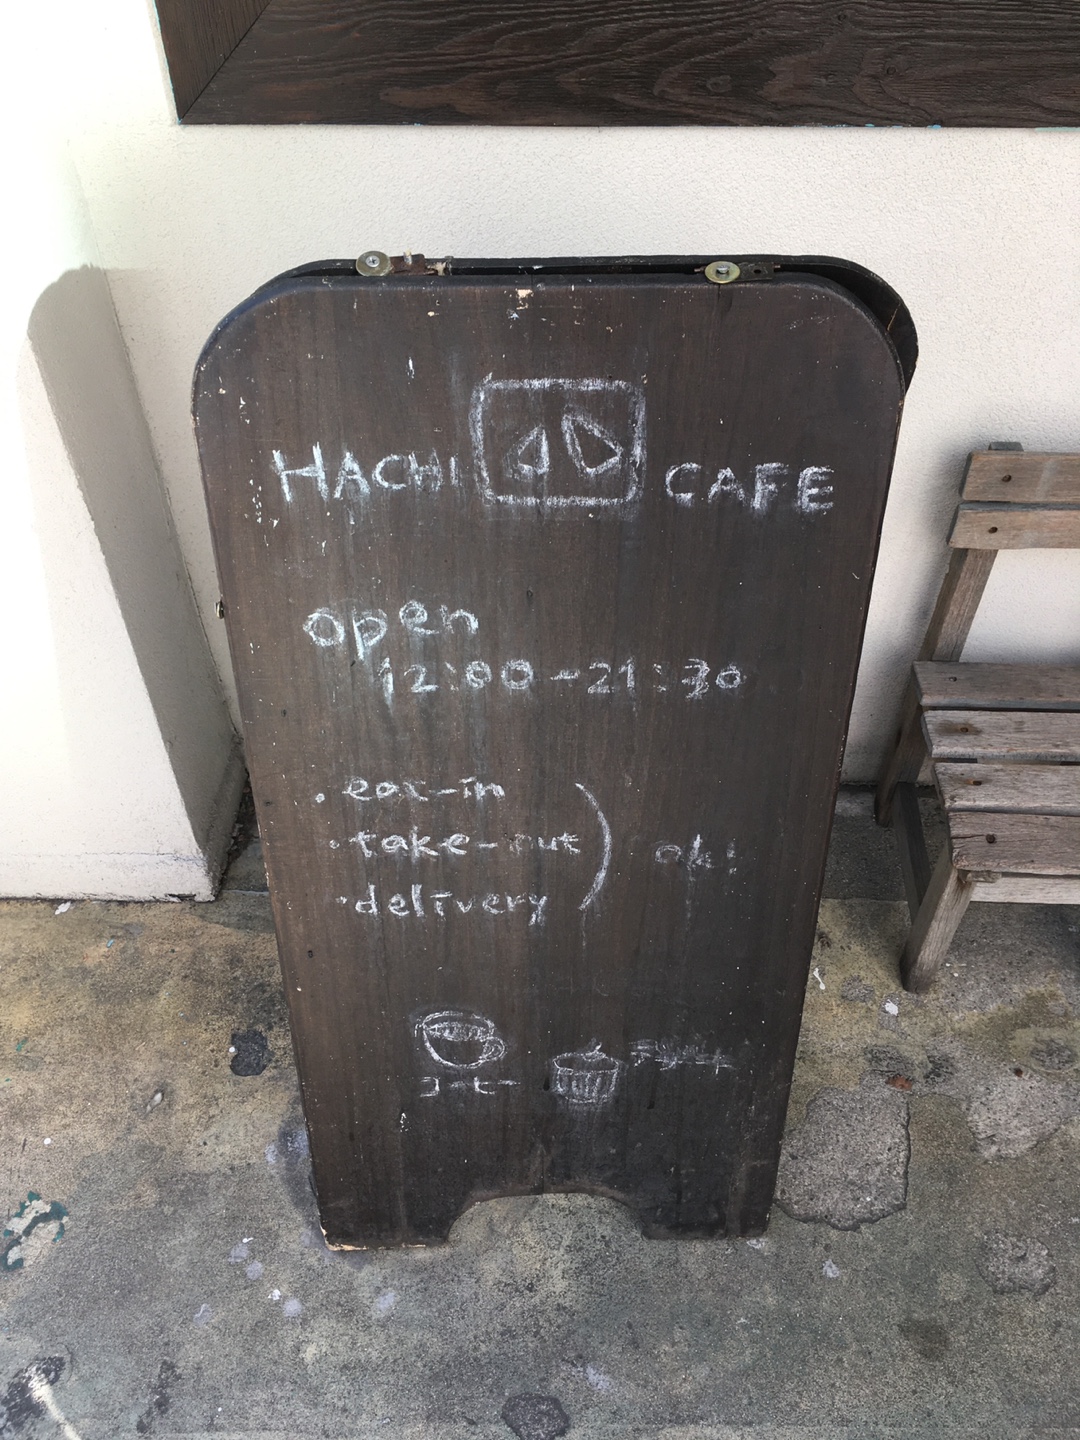 HACHI CAFE
open
12:00-21:30
・eat-in
・take-out
・delivery
ok!
コーヒー